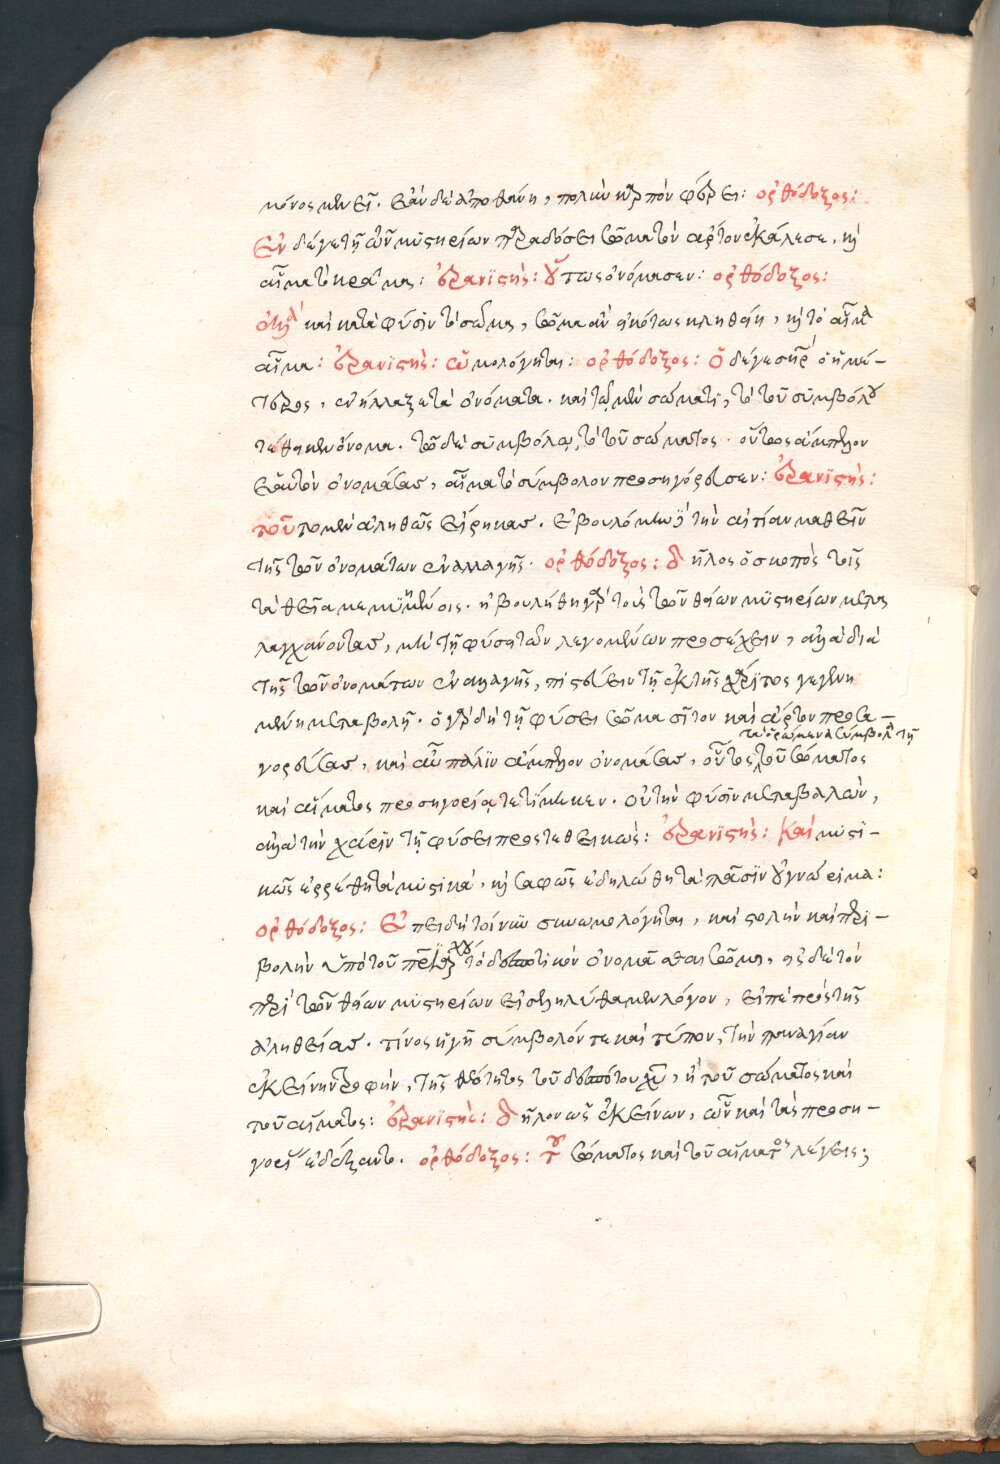 μόνος μένει. ἐὰν δὲ ἀποθάνη, πολὺν καρπὸν φέρει: ὀρθόδοξος:
Ἐν δέ γε τῆ τῶν μυστηρίων παραδόσει σῶμα τὸν ἄρτον ἐκάλεσε, καὶ
αἷμα τὸ κρᾶμα: ἐρανιστής: οὕτως ὀνόμασεν: ὀρθόδοξος:
ἀλλὰ καὶ κατὰ φύσιν τὸ σῶμα, σῶμα ἂν εἰκότως κληθείη, καὶ τὸ αἷμα
αἷμα: ἐρανιστής: ὡμολόγηται: ὀρθόδοξος: Ὁ δέ γε σωτὴρ ὁ ἡμέ-
τερος, ἐνήλλαξε τὰ ὀνόματα. καὶ τῷ μὲν σώματι, τὸ τοῦ συμβόλου
τέθηκεν ὄνομα. τῷ δὲ συμβόλῳ, τὸ τοῦ σώματος. οὕτως ἄμπελον
ἑαυτὸν ὀνομάσας, αἷμα τὸ σύμβολον προσηγόρευσεν: ἐρανιστής:
τοῦτο μὲν ἀληθῶς εἴρηκας. ἐβουλόμην δὲ τὴν αἰτίαν μαθεῖν
τῆς τῶν ὀνομάτων ἐναλλαγῆς. ὀρθόδοξος: δῆλος ὁ σκοπὸς τοῖς
τὰ θεῖα μεμυημένοις. ἠβουλήθη γὰρ τοὺς τῶν θείων μυστηρίων μετα
λαγχάνοντας, μὴ τῆ φύσει τῶν λεγομένων προσέχειν, ἀλλὰ διὰ
τῆς τῶν ὀνομάτων ἐναλλαγῆς, πιστεύειν τῆ ἐκ τῆς χάριτος γεγενη
μένη μεταβολῆ. ὁ γὰρ δὴ τῆ φύσει σῶμα σῖτον καὶ ἄρτον προσα-
γορεύσας, καὶ αὖ πάλιν ἄμπελον ὀνομάσας, οὗτος τὰ ὁρώμενα σύμβολα τῆ τοῦ σώματος
καὶ αἵματος προσηγορίᾳ τετίμηκεν. οὐ τὴν φύσιν μεταβαλών,
ἀλλὰ τὴν χάριν τῆ φύσει προστεθεικώς: ἐρανιστής: Καὶ μυστι-
κῶς ἐρρέθη τὰ μυστικά, καὶ σαφῶς ἐδηλώθη τὰ πᾶσιν οὐ γνώριμα:
ὀρθόδοξος: Ἐπειδὴ τοίνυν συνωμολόγηται, καὶ στολὴν καὶ περι-
βολὴν ὑπὸ τοῦ πατριάρχου τὸ δεσποτικὸν ὀνομᾶσθαι σῶμα, εἰς δὲ τὸν
περὶ τῶν θείων μυστηρίων εἰσεληλύθαμεν λόγον, εἰπὲ πρὸς τῆς
ἀληθείας. τίνος ἡγῆ σύμβολόν τε καὶ τύπον, τὴν παναγίαν
ἐκείνην τροφήν, τῆς θεότητος τοῦ δεσπότου χυ, ἢ τοῦ σώματος καὶ
τοῦ αἵματος: ἐρανιστής: δῆλον ὡς ἐκείνων, ὧν καὶ τὰς προση-
γορίας ἐδέξαντο. ὀρθόδοξος: τοῦ σώματος καὶ τοῦ αἵματος λέγεις;